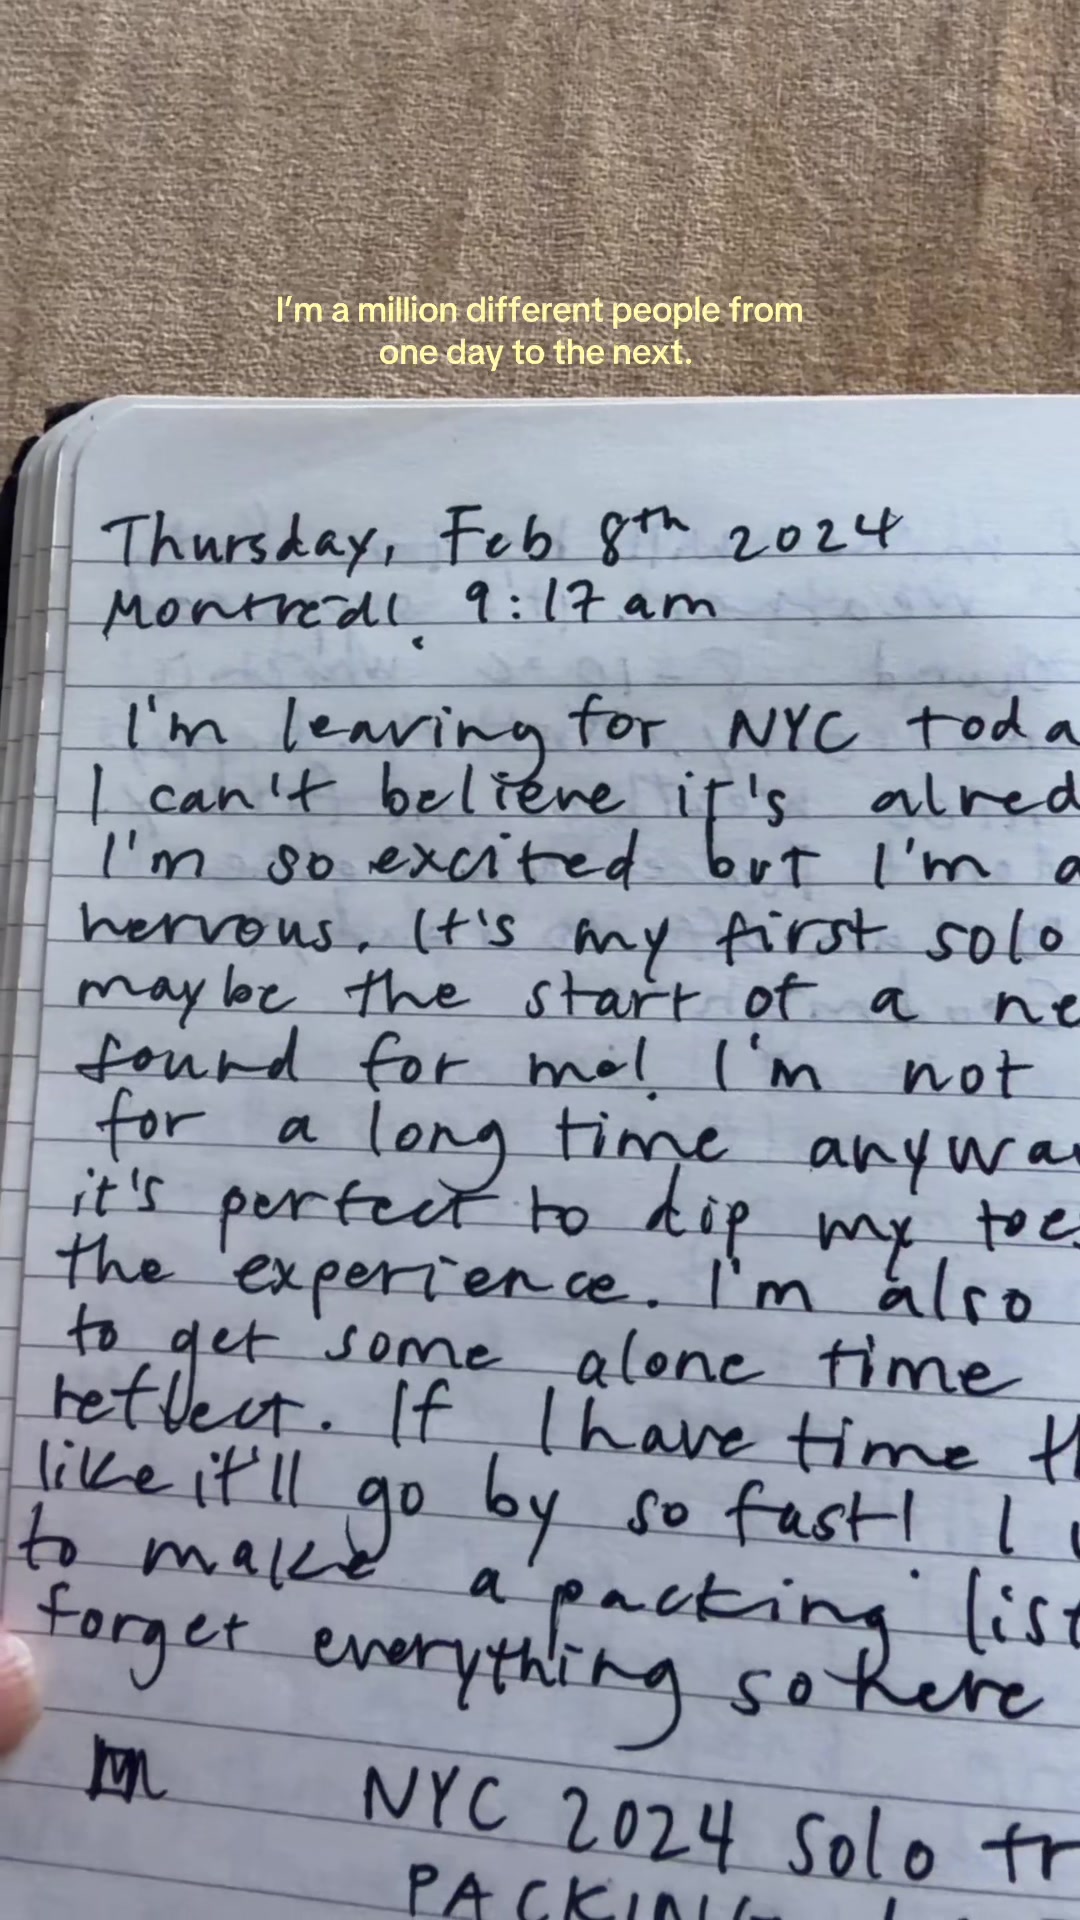 I'm a million different people from
one day to the next.
Thursday, Feb 8th 2024
Montréal, 9:17am
I'm leaving for NYC toda
I can't believe it's alred
I'm so excited but I'm a
nervous. It's my first solo
maybe the start of a ne
found for me! I'm not
for a long time anywa
it's perfect to dip my toes
the experience. I'm also
to get some alone time
reflect. If I have time th
like it'll go by so fast! I
to make a packing list
forget everything so here
NYC 2024 Solo tr
PACKING